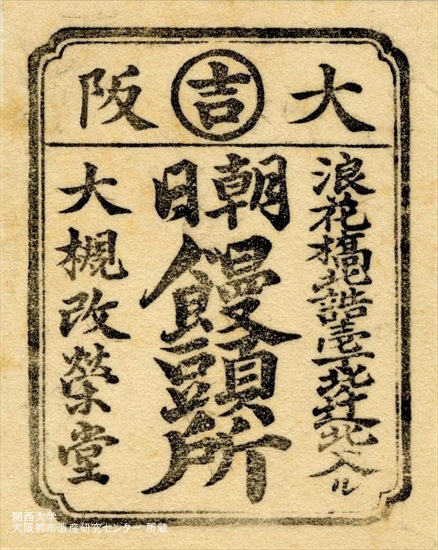 大 吉 阪
浪花橋北詰壱丁北辻北へ入ル
朝日
饅頭所
大槻改榮堂
関西大学
大阪都市遺産研究センター 所蔵